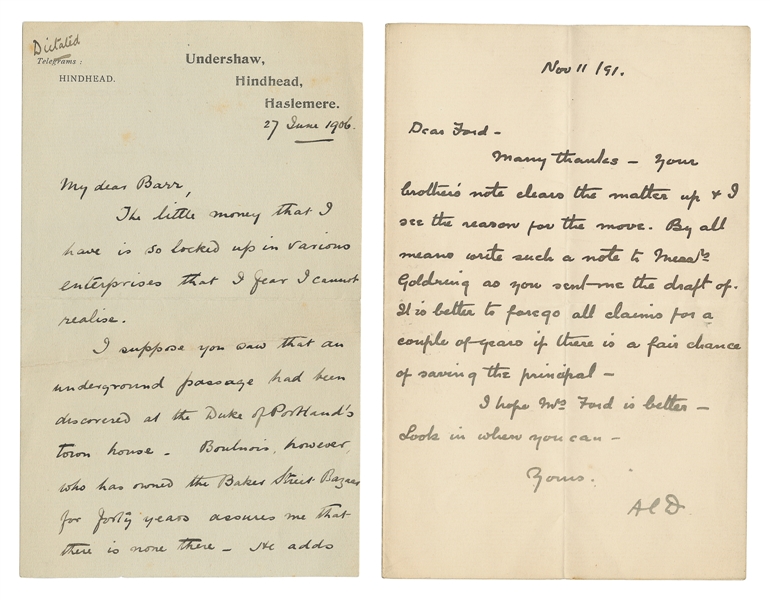 Dictated
Telegrams:
HINDHEAD.
Undershaw,
Hindhead,
Haslemere.
27 June 1906.
My dear Barr,
The little money that I
have is so locked up in various
enterprises that I fear I cannot
realise.
I suppose you saw that an
underground passage had been
discovered at the Duke of Portland's
town house - Boulnois, however,
who has owned the Baker Street Bazaar
for forty years assures me that
there is none there - He adds
Nov 11/91.
Dear Ford -
Many thanks - Your
brother's note clears the matter up & I
see the reason for the move. By all
means write such a note to Messrs
Goldring as you sent me the draft of.
It is better to forego all claims for a
couple of years if there is a fair chance
of saving the principal -
I hope Mrs Ford is better -
Look in when you can -
Yours.
ACD